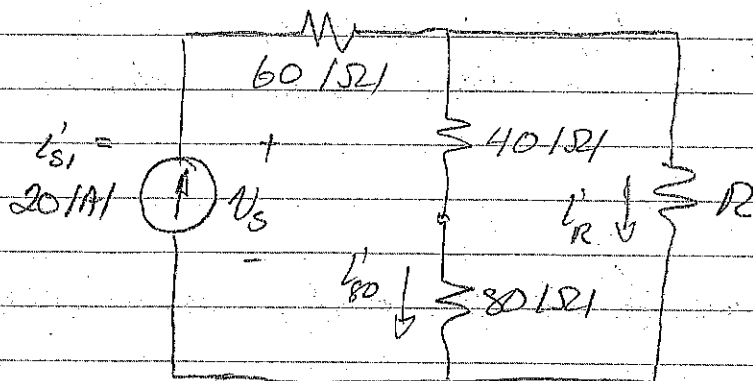 60 /Ω/
i's1 =
20 /A/
+
vs
-
40 /Ω/
i'R
R
i'80
80 /Ω/